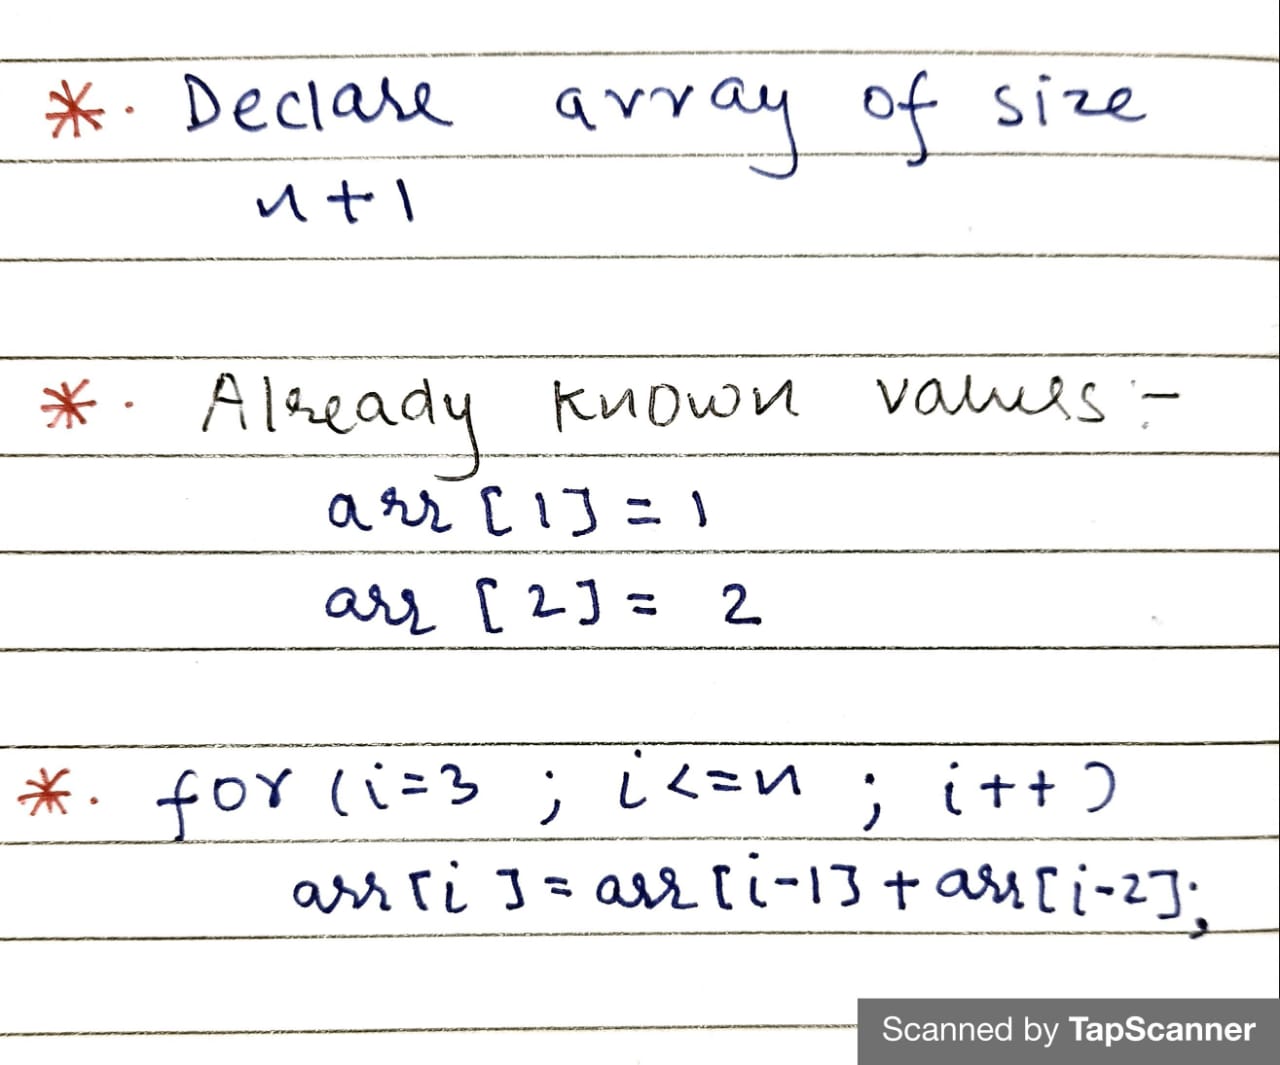 *. Declare array of size
n+1
*. Already known values:-
arr[1]=1
arr [2]= 2
*. for (i=3 ; i<=n ; i++)
arr[i]=arr[i-1]+arr[i-2];
Scanned by TapScanner